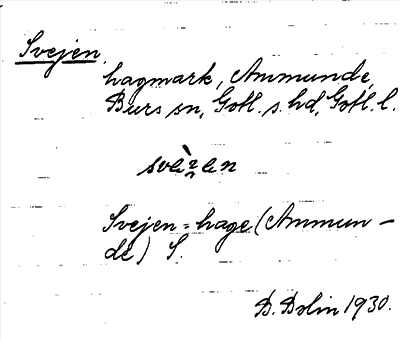 Svejen,
hagmark, Ammunde,
Burs sn, Gotl. s. hd, Gotl. l.
Svejen-hage (Ammun-
de) S.
D. Bolin 1930.